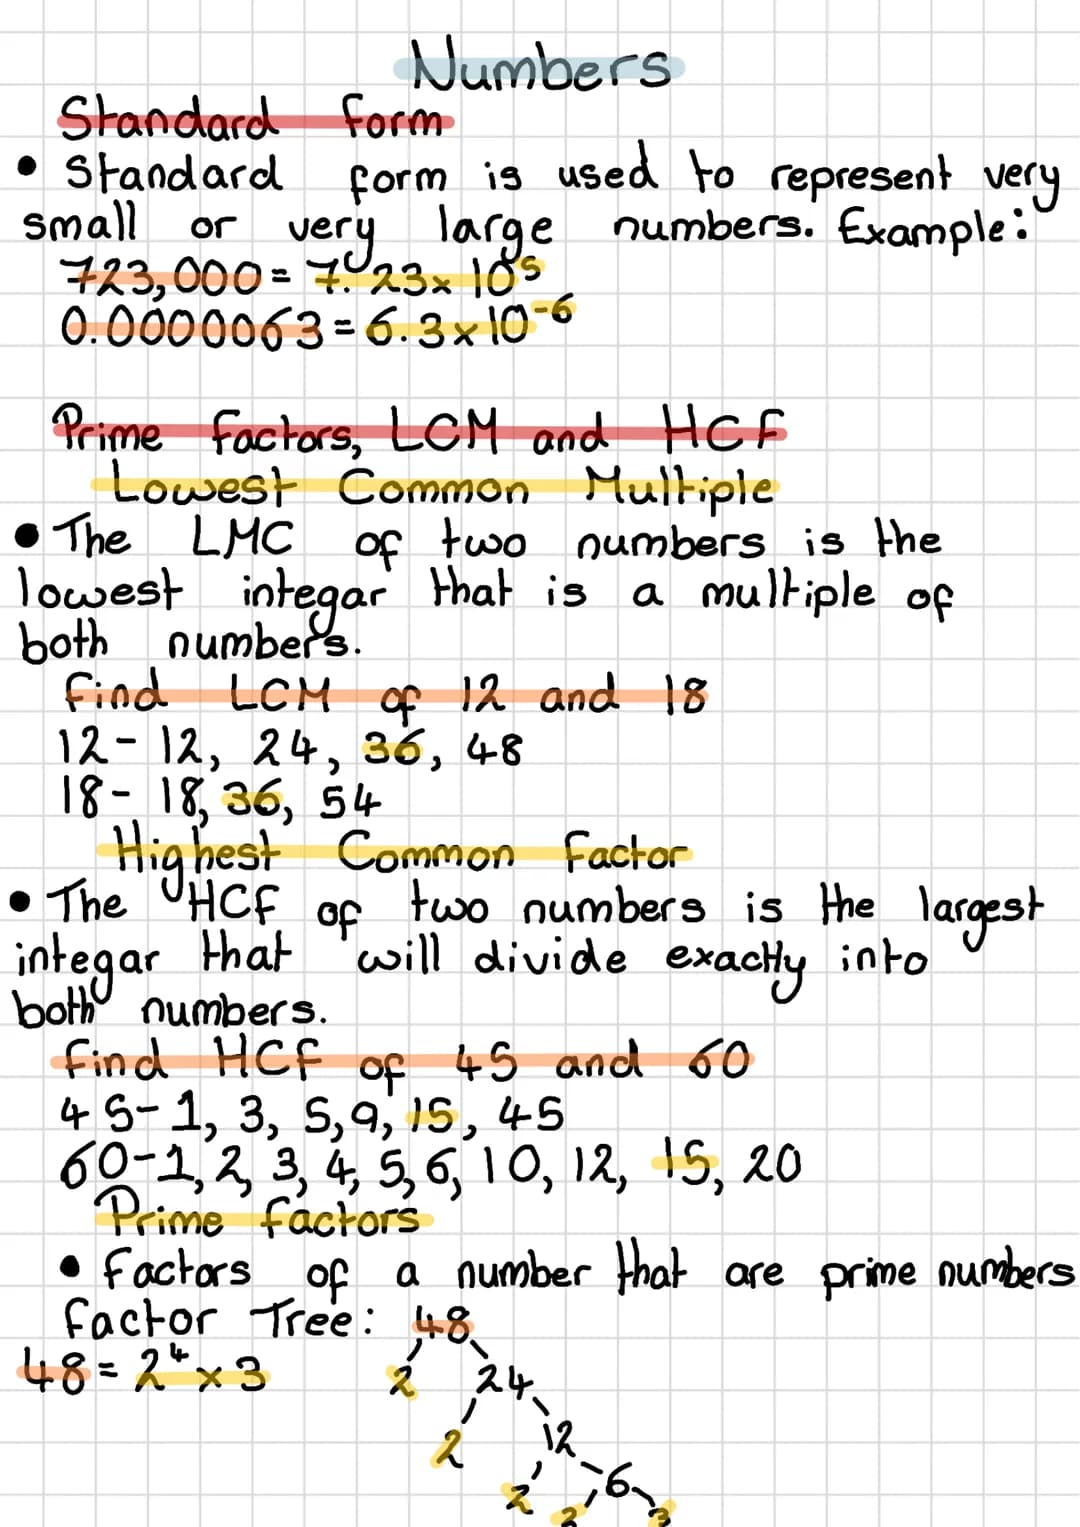 Numbers
Standard form
• Standard form is used to represent very
small or very large numbers. Example:
723,000 = 7.23 x 10⁵
0.0000063 = 6.3 x 10⁻⁶
Prime factors, LCM and HCF
Lowest Common Multiple
• The LMC of two numbers is the
lowest integar that is a multiple of
both numbers.
find LCM of 12 and 18
12 - 12, 24, 36, 48
18 - 18, 36, 54
Highest Common factor
• The HCF of two numbers is the largest
integar that will divide exactly into
both numbers.
find HCF of 45 and 60
45 - 1, 3, 5, 9, 15, 45
60 - 1, 2, 3, 4, 5, 6, 10, 12, 15, 20
Prime factors
• factors of a number that are prime numbers
factor Tree: 48
48 = 2⁴ x 3 2 24
2 12
2 6
2 3